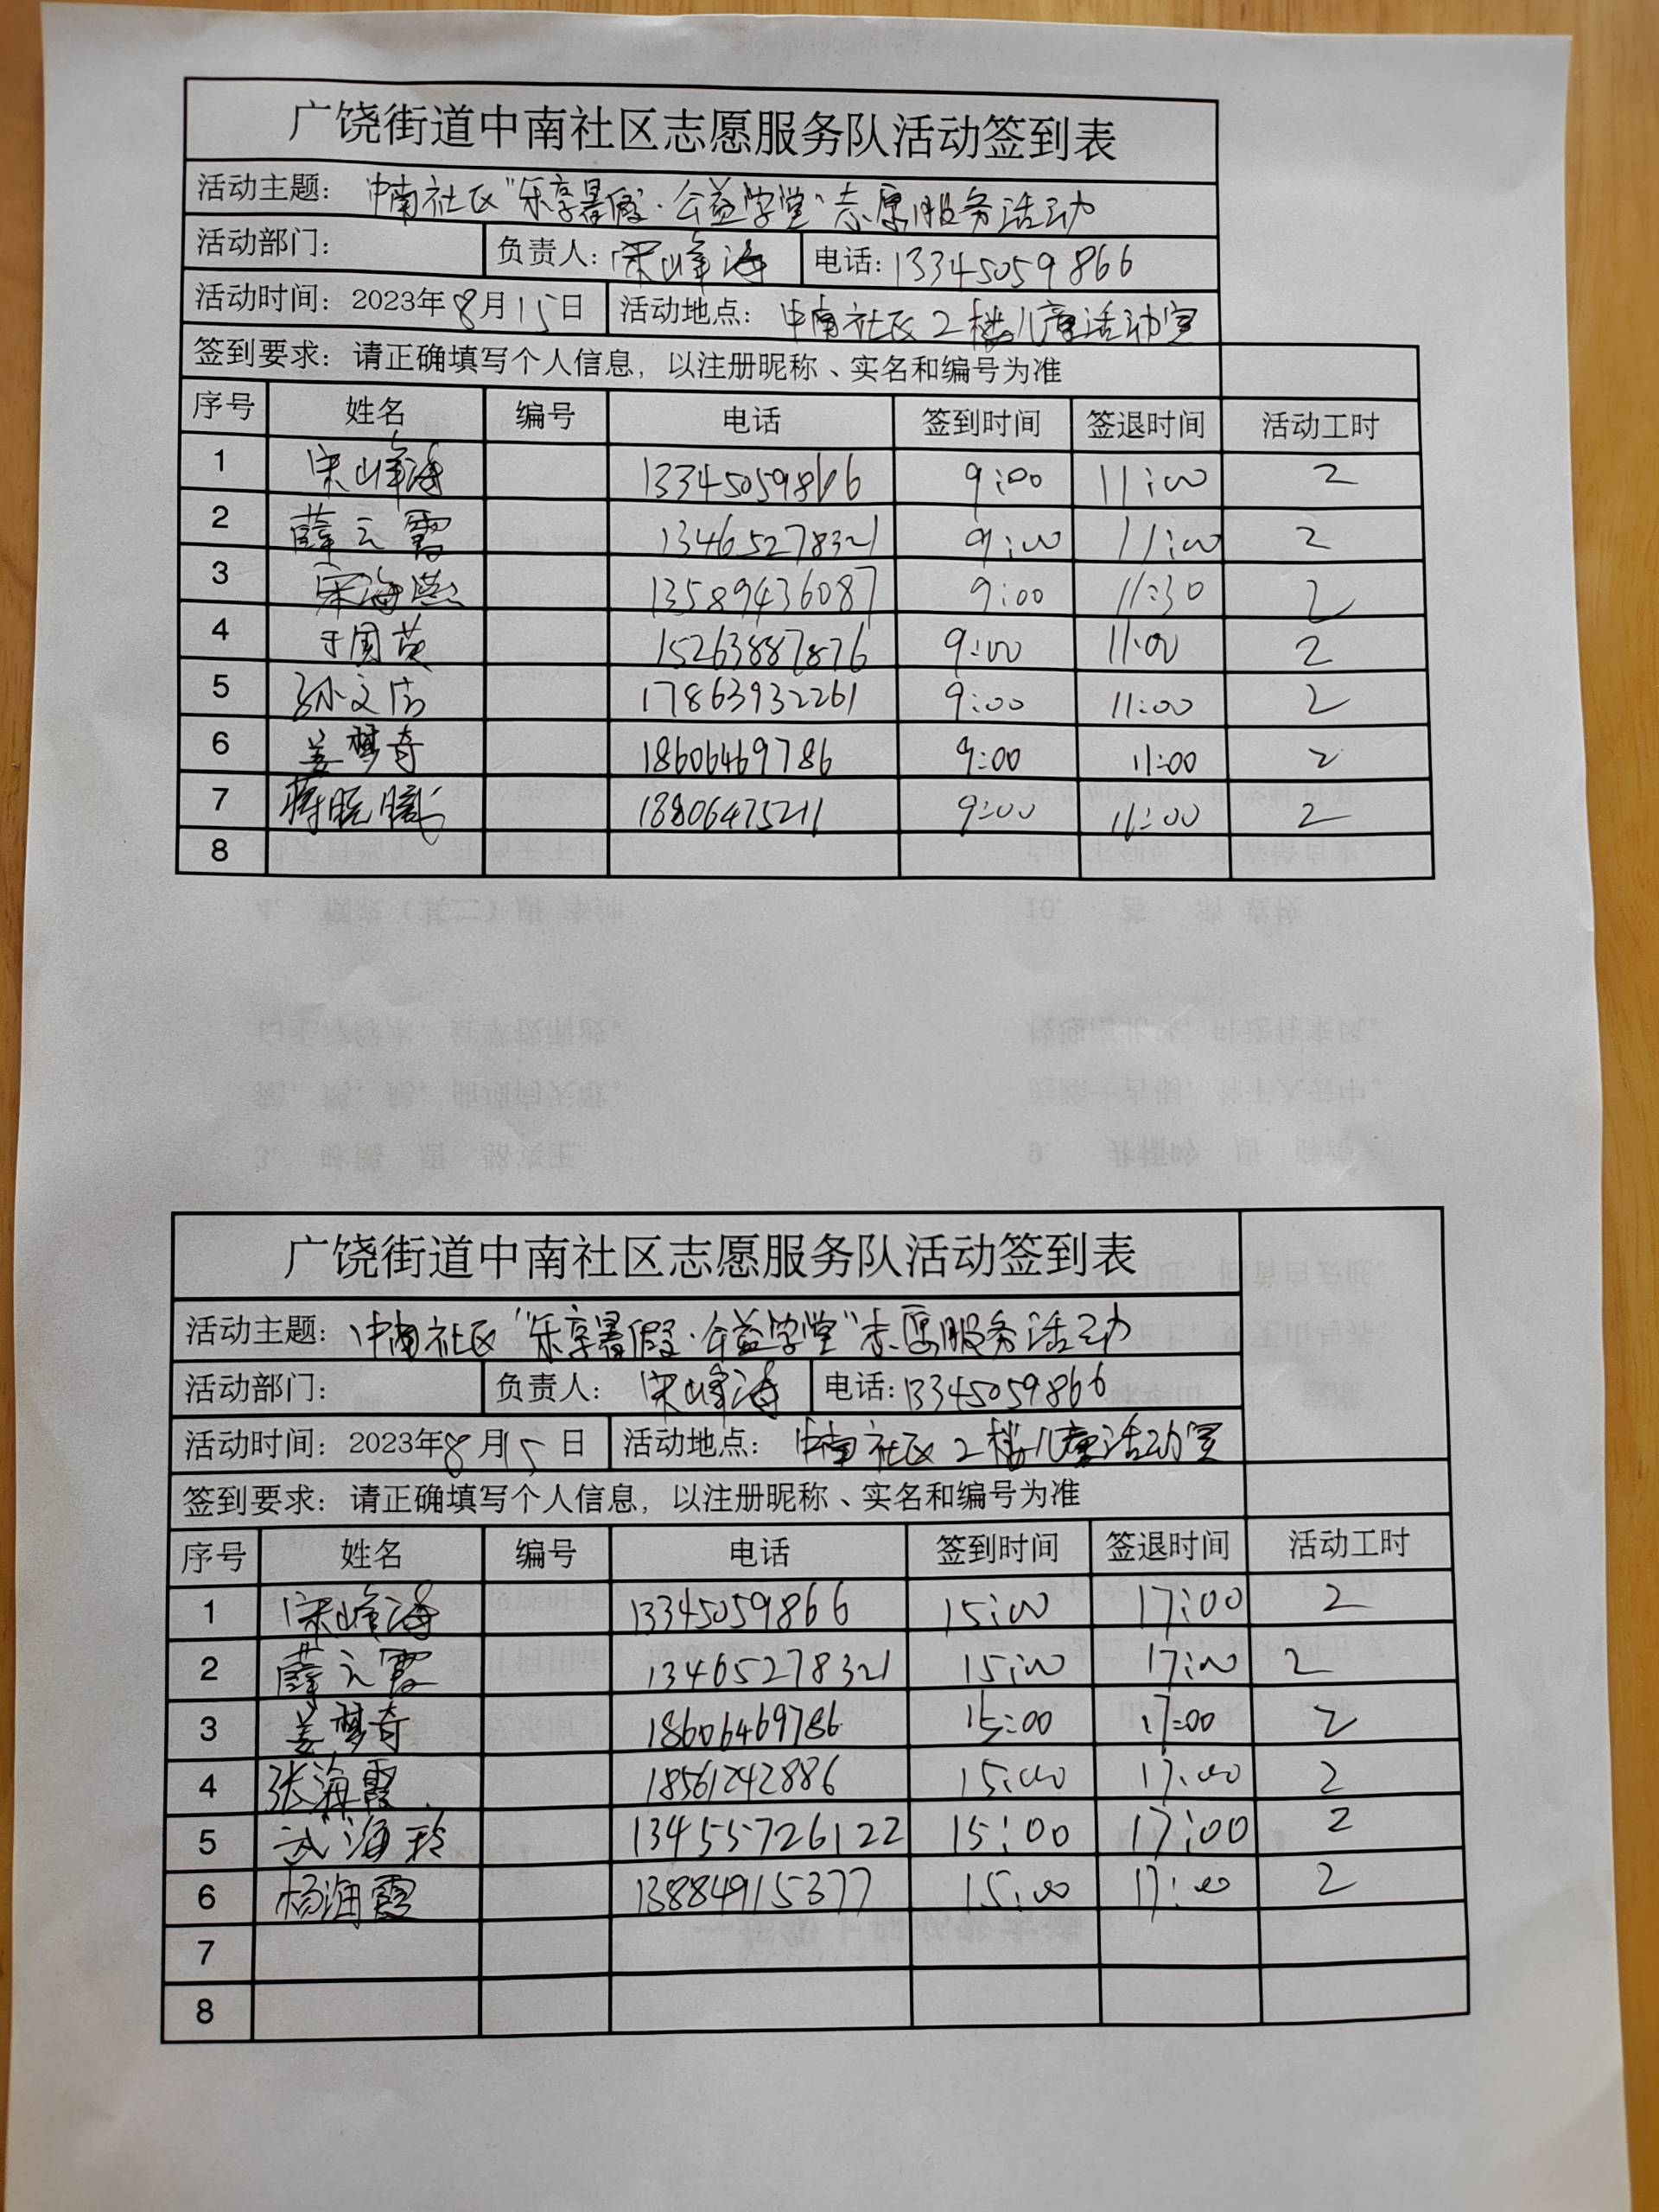 广饶街道中南社区志愿服务队活动签到表
活动主题：中南社区“乐享暑假·公益学堂”志愿服务活动
活动部门： 负责人：宋峰海 电话：13345059866
活动时间：2023年8月15日 活动地点：中南社区2楼儿童活动室
签到要求：请正确填写个人信息，以注册昵称、实名和编号为准
序号 姓名 编号 电话 签到时间 签退时间 活动工时
1 宋峰海 13345059866 9:00 11:00 2
2 薛元霞 13465278321 9:00 11:00 2
3 宋海燕 13589436087 9:00 11:30 2
4 于国英 15263887876 9:00 11:00 2
5 孙文洁 17863932261 9:00 11:00 2
6 姜梦奇 18606469786 9:00 11:00 2
7 蒋晓腾 18806475211 9:00 11:00 2
8
广饶街道中南社区志愿服务队活动签到表
活动主题：中南社区“乐享暑假·公益学堂”志愿服务活动
活动部门： 负责人：宋峰海 电话：13345059866
活动时间：2023年8月15日 活动地点：中南社区2楼儿童活动室
签到要求：请正确填写个人信息，以注册昵称、实名和编号为准
序号 姓名 编号 电话 签到时间 签退时间 活动工时
1 宋峰海 13345059866 15:00 17:00 2
2 薛元霞 13465278321 15:00 17:00 2
3 姜梦奇 18606469786 15:00 17:00 2
4 张海霞 18561242886 15:00 17:00 2
5 武海玲 13455726122 15:00 17:00 2
6 杨海霞 13884915377 15:00 17:00 2
7
8